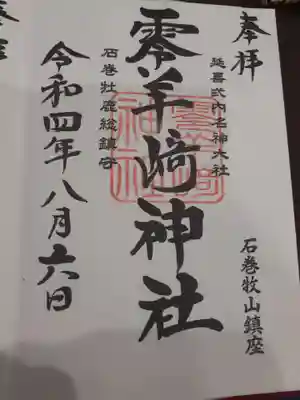 奉拝
延喜式内名神大社
石巻牧山鎮座
零羊﨑神社
石巻牡鹿総鎮守
令和四年八月六日